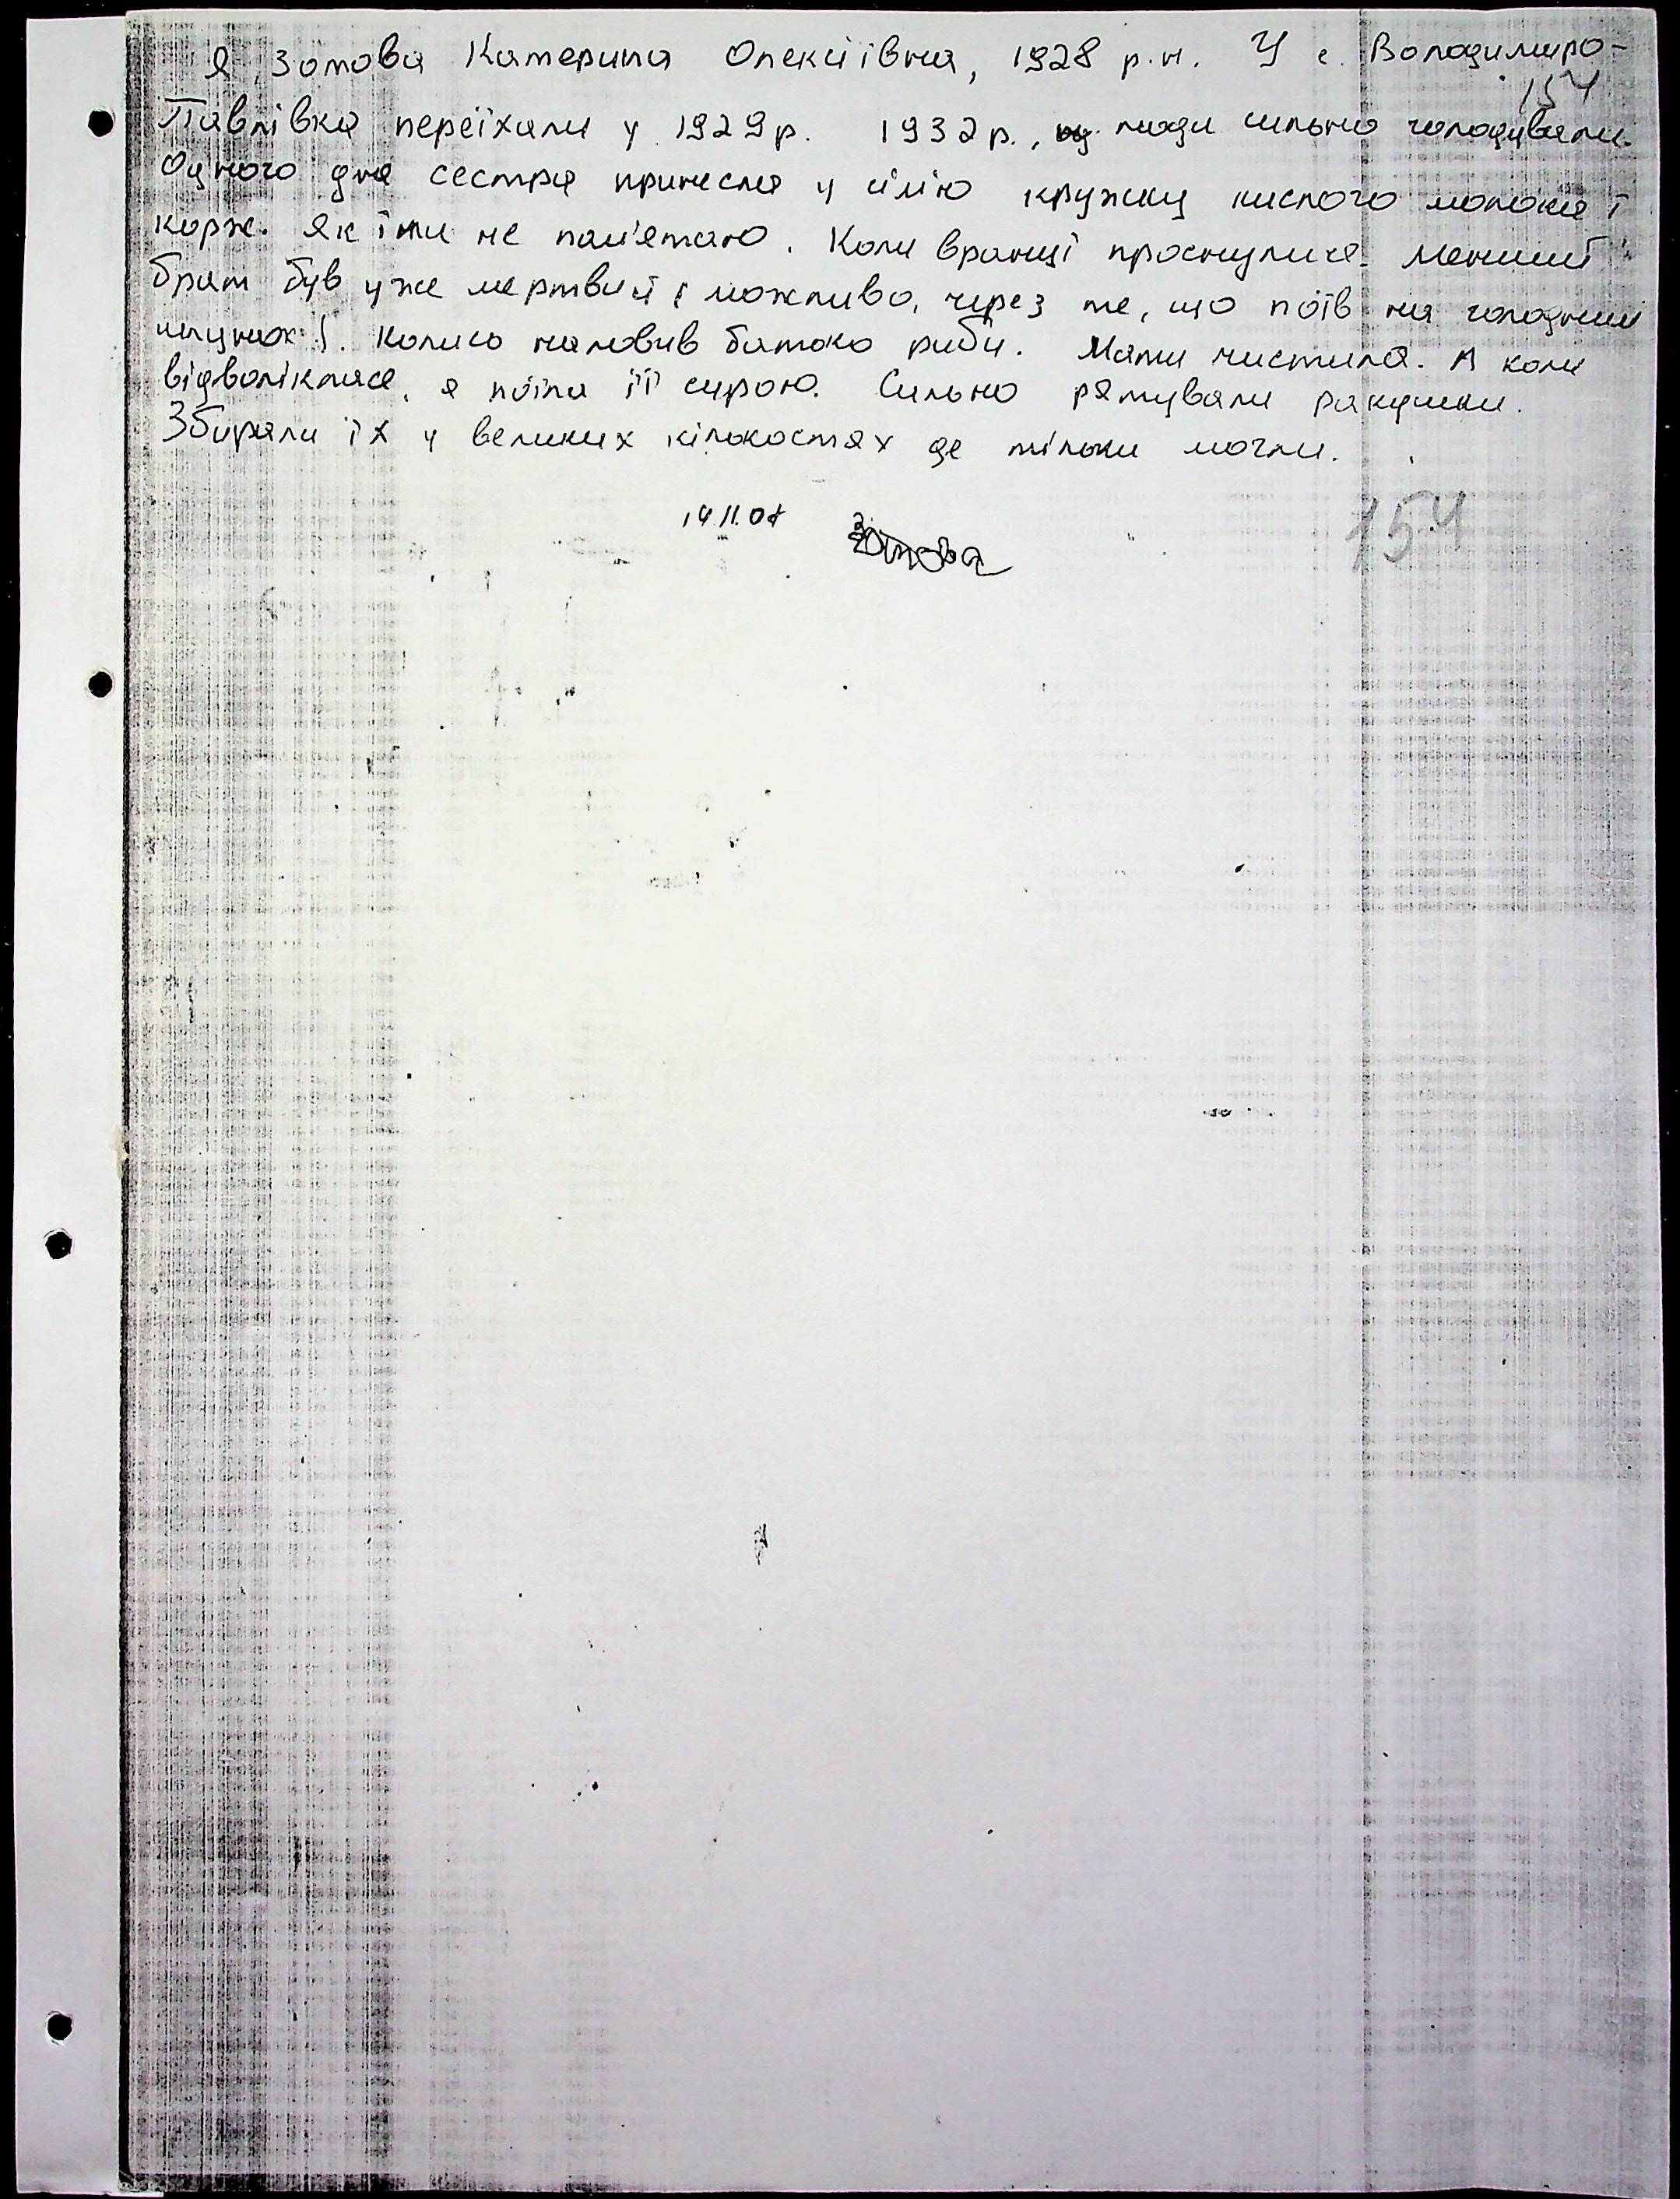 Я, Зотова Катерина Олексіївна, 1928 р.н. У с. Володимиро-
154
Павлівка переїхали у 1929р. 1932р., люди сильно голодували.
Одного дня сестра принесла у сім'ю кружку кислого молока і
корж. Як їли не пам'ятаю. Коли вранці проснулися. Менший
брат був уже мертвий (можливо, через те, що поїв на голодний
шлунок). Колись наловив батько риби. Мати чистила. А коли
відволіклася, я поїла її сирою. Сильно рятували ракушки.
Збирали їх у великих кількостях де тільки могли.
154
14.11.07 Зотова